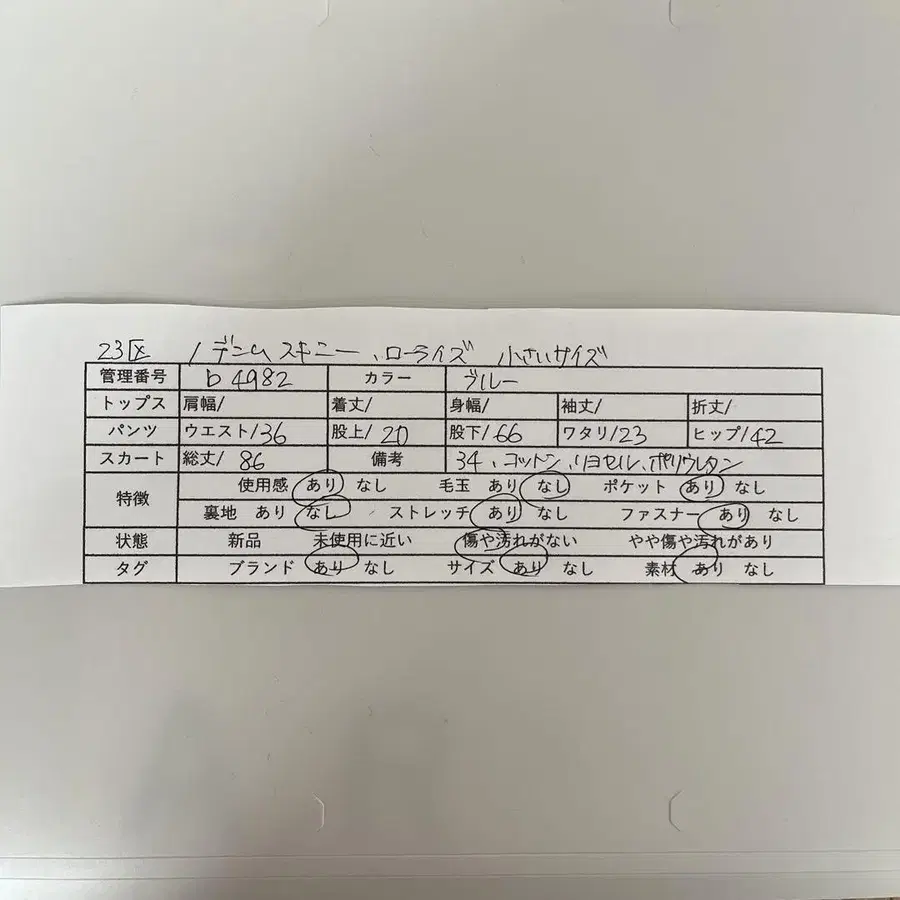 23区 / デニム スキニー、ローライズ 小さいサイズ
管理番号 b4982 カラー ブルー
トップス 肩幅/ 着丈/ 身幅/ 袖丈/ 折丈/
パンツ ウエスト/36 股上/20 股下/66 ワタリ/23 ヒップ/42
スカート 総丈/86 備考 34、コットン、リヨセル、ポリウレタン
特徴 使用感 あり なし 毛玉 あり なし ポケット あり なし
裏地 あり なし ストレッチ あり なし ファスナー あり なし
状態 新品 未使用に近い 傷や汚れがない やや傷や汚れがあり
タグ ブランド あり なし サイズ あり なし 素材 あり なし